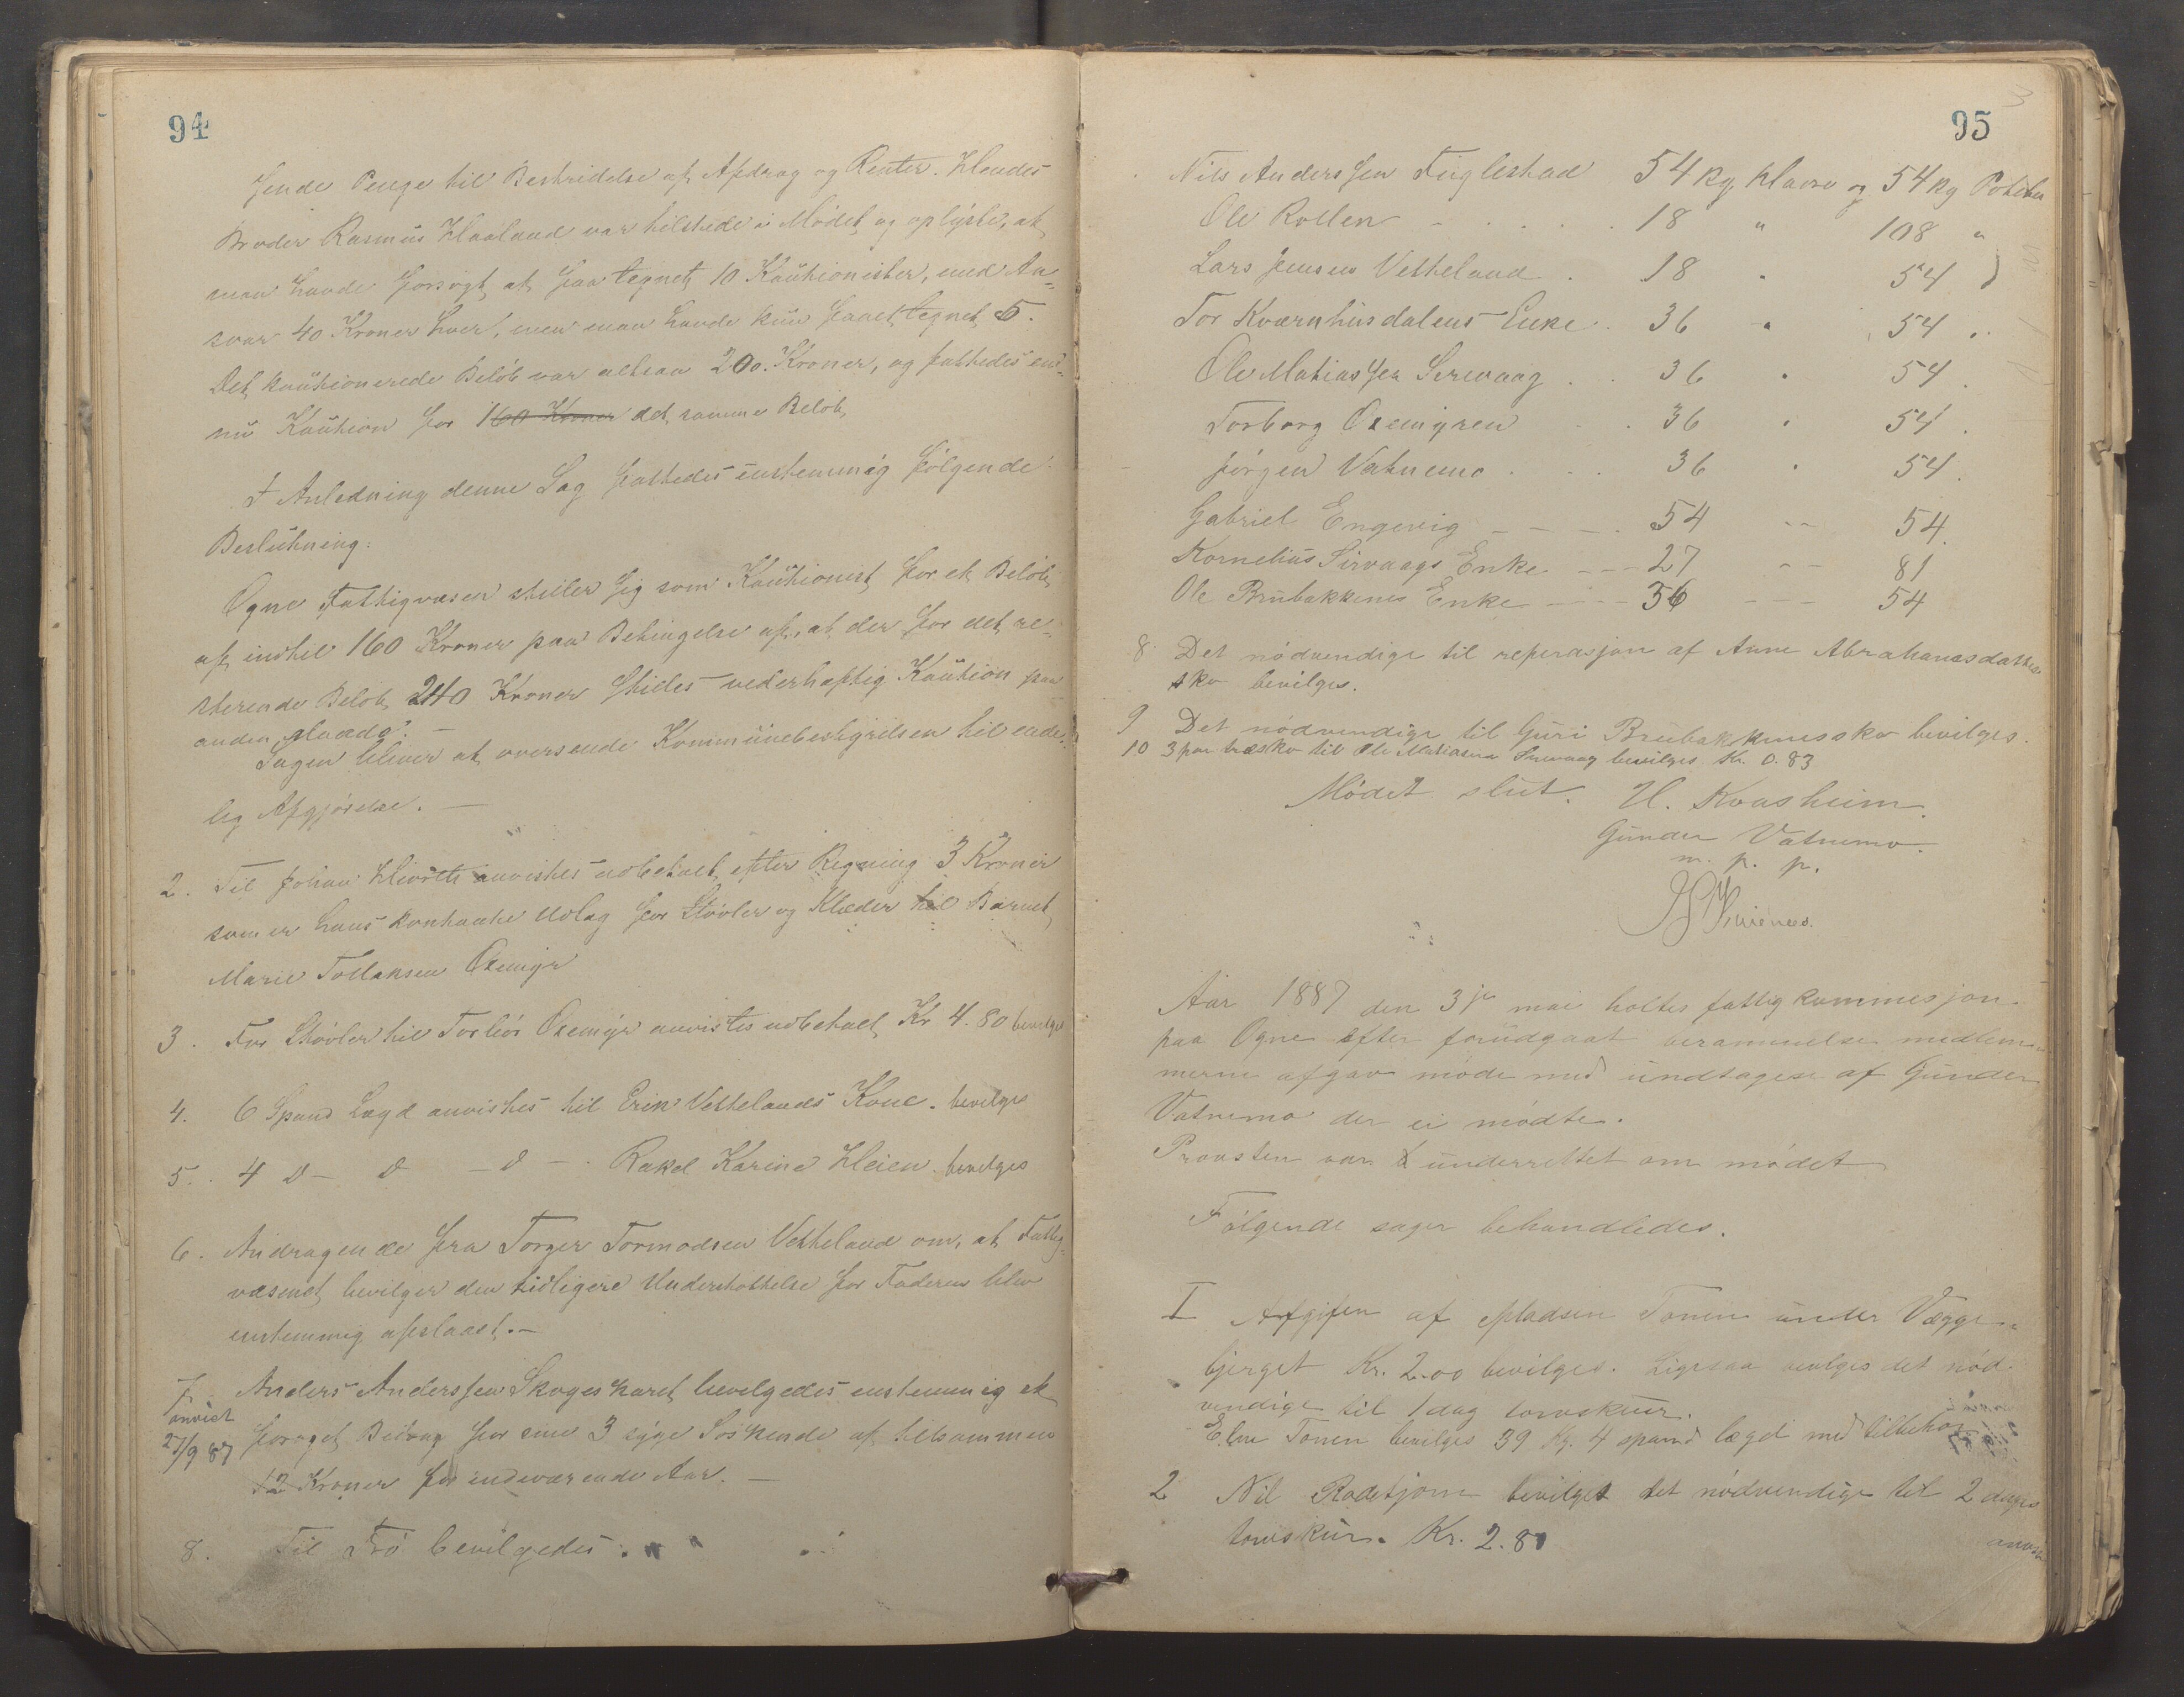 94
sende Penge til Bestridelse af Afdrag og Renter. Hendes
Broder Rasmus Haaland var tilstede i Mødet og oplyste, at
man havde forsøgt at faa tegnet 10 Kautionister, med An-
svar 40 Kroner hver, men man havde kun faaet tegnet 5.
Det kautionerede Beløb var altsaa 200 Kroner, og fattedes en-
nu Kaution for 160 Kroner det samme Beløb,
I Anledning denne Sag fattedes enstemmig følgende
Beslutning:
Ogne Fattigvæsen stiller sig som Kautionist for et Beløb
af indtil 160 Kroner paa Betingelse af, at der for det re-
sterende Beløb 240 Kroner stilles vederhæftig Kaution paa
anden Maade. –
Sagen bliver at oversende Kommunebestyrelsen til ende-
lig Afgjørelse. –
2. Til Johan anvistes udbetalt efter Regning 3 Kroner
som er hans kontante Udlæg for Støvler og Klæder til Barnet
Marie Tollaksen Oxemyr
3. For Støvler til Torleir Oxemyr anvistes udbetalt Kr 4.80 bevilges
4. 6 Spand Lægd anvistes til Erik Vetthelands Kone. bevilges
5. 4 D – D – D – Rakel Karine Heien. bevilges
6. Andragende fra Torger Tormodsen Vetteland om, at Fattig-
væsenet bevilger den tidligere Understøttelse for Faderen blev
enstemmig afslaaet. –
7 Anders Anderssen Skogeskaret bevilgedes enstemmig et
anvist
27/9 87
forøget Bidrag for sine 3 syge Søskende af tilsammen
12 Kroner for indeværende Aar. –
8. Til Frø bevilgedes:
95
Nils Anderssen Fuglestad 54 kg Havre og 54 kg Poteter
Ole Rollen – . . . . 18 " 108 "
Lars Jensens Vetteland . 18 " 54 )
Tor Kvernhusdalens Enke . 36 " 54 .
Ole Matiassen Sirevaag . . 36 " 54 .
Torborg Oxemyren . . 36 " 54 .
Jørgen Vatnemo . . . 36 " 54 .
Gabriel Engevig – – – . 54 – – 54.
Kornelius Sirvaags Enke – – – 27 – – 81
Ole Brubakkenes Enke – – – 36 – – – 54
8. Det nødvendige til reperasjon af Anne Abrahamsdatters
sko bevilges.
9 Det nødvendige til Guri Brubakkenes sko bevilges.
10 3 par træsko til Ole Matiassen Sirevaag bevilges Kr. 0.83
Mødet slut. H. Kvasheim
Gunder Vatnemo.
m. p. p.
Aar 1887 den 3je mai holtes fattigkommisjon
paa Ogne efter forudgaat berammelse medlem-
merne afgav møde med undtagese af Gunder
Vatnemo der ei mødte.
Provsten var underrettet om mødet
Følgende sager behandledes.
I Afgifen af Pladsen Tonen under Vægge-
bjerget Kr. 2.00 bevilges. Ligesaa bevilges det nød-
vendige til 1 dag torvskur.
Elne Tonen bevilges 39 Kg. 4 spand lægd med tilbehør
2 Nil Rodetjørn bevilget det nødvendige til 2 dages
torvskur. Kr. 2.80
anvist